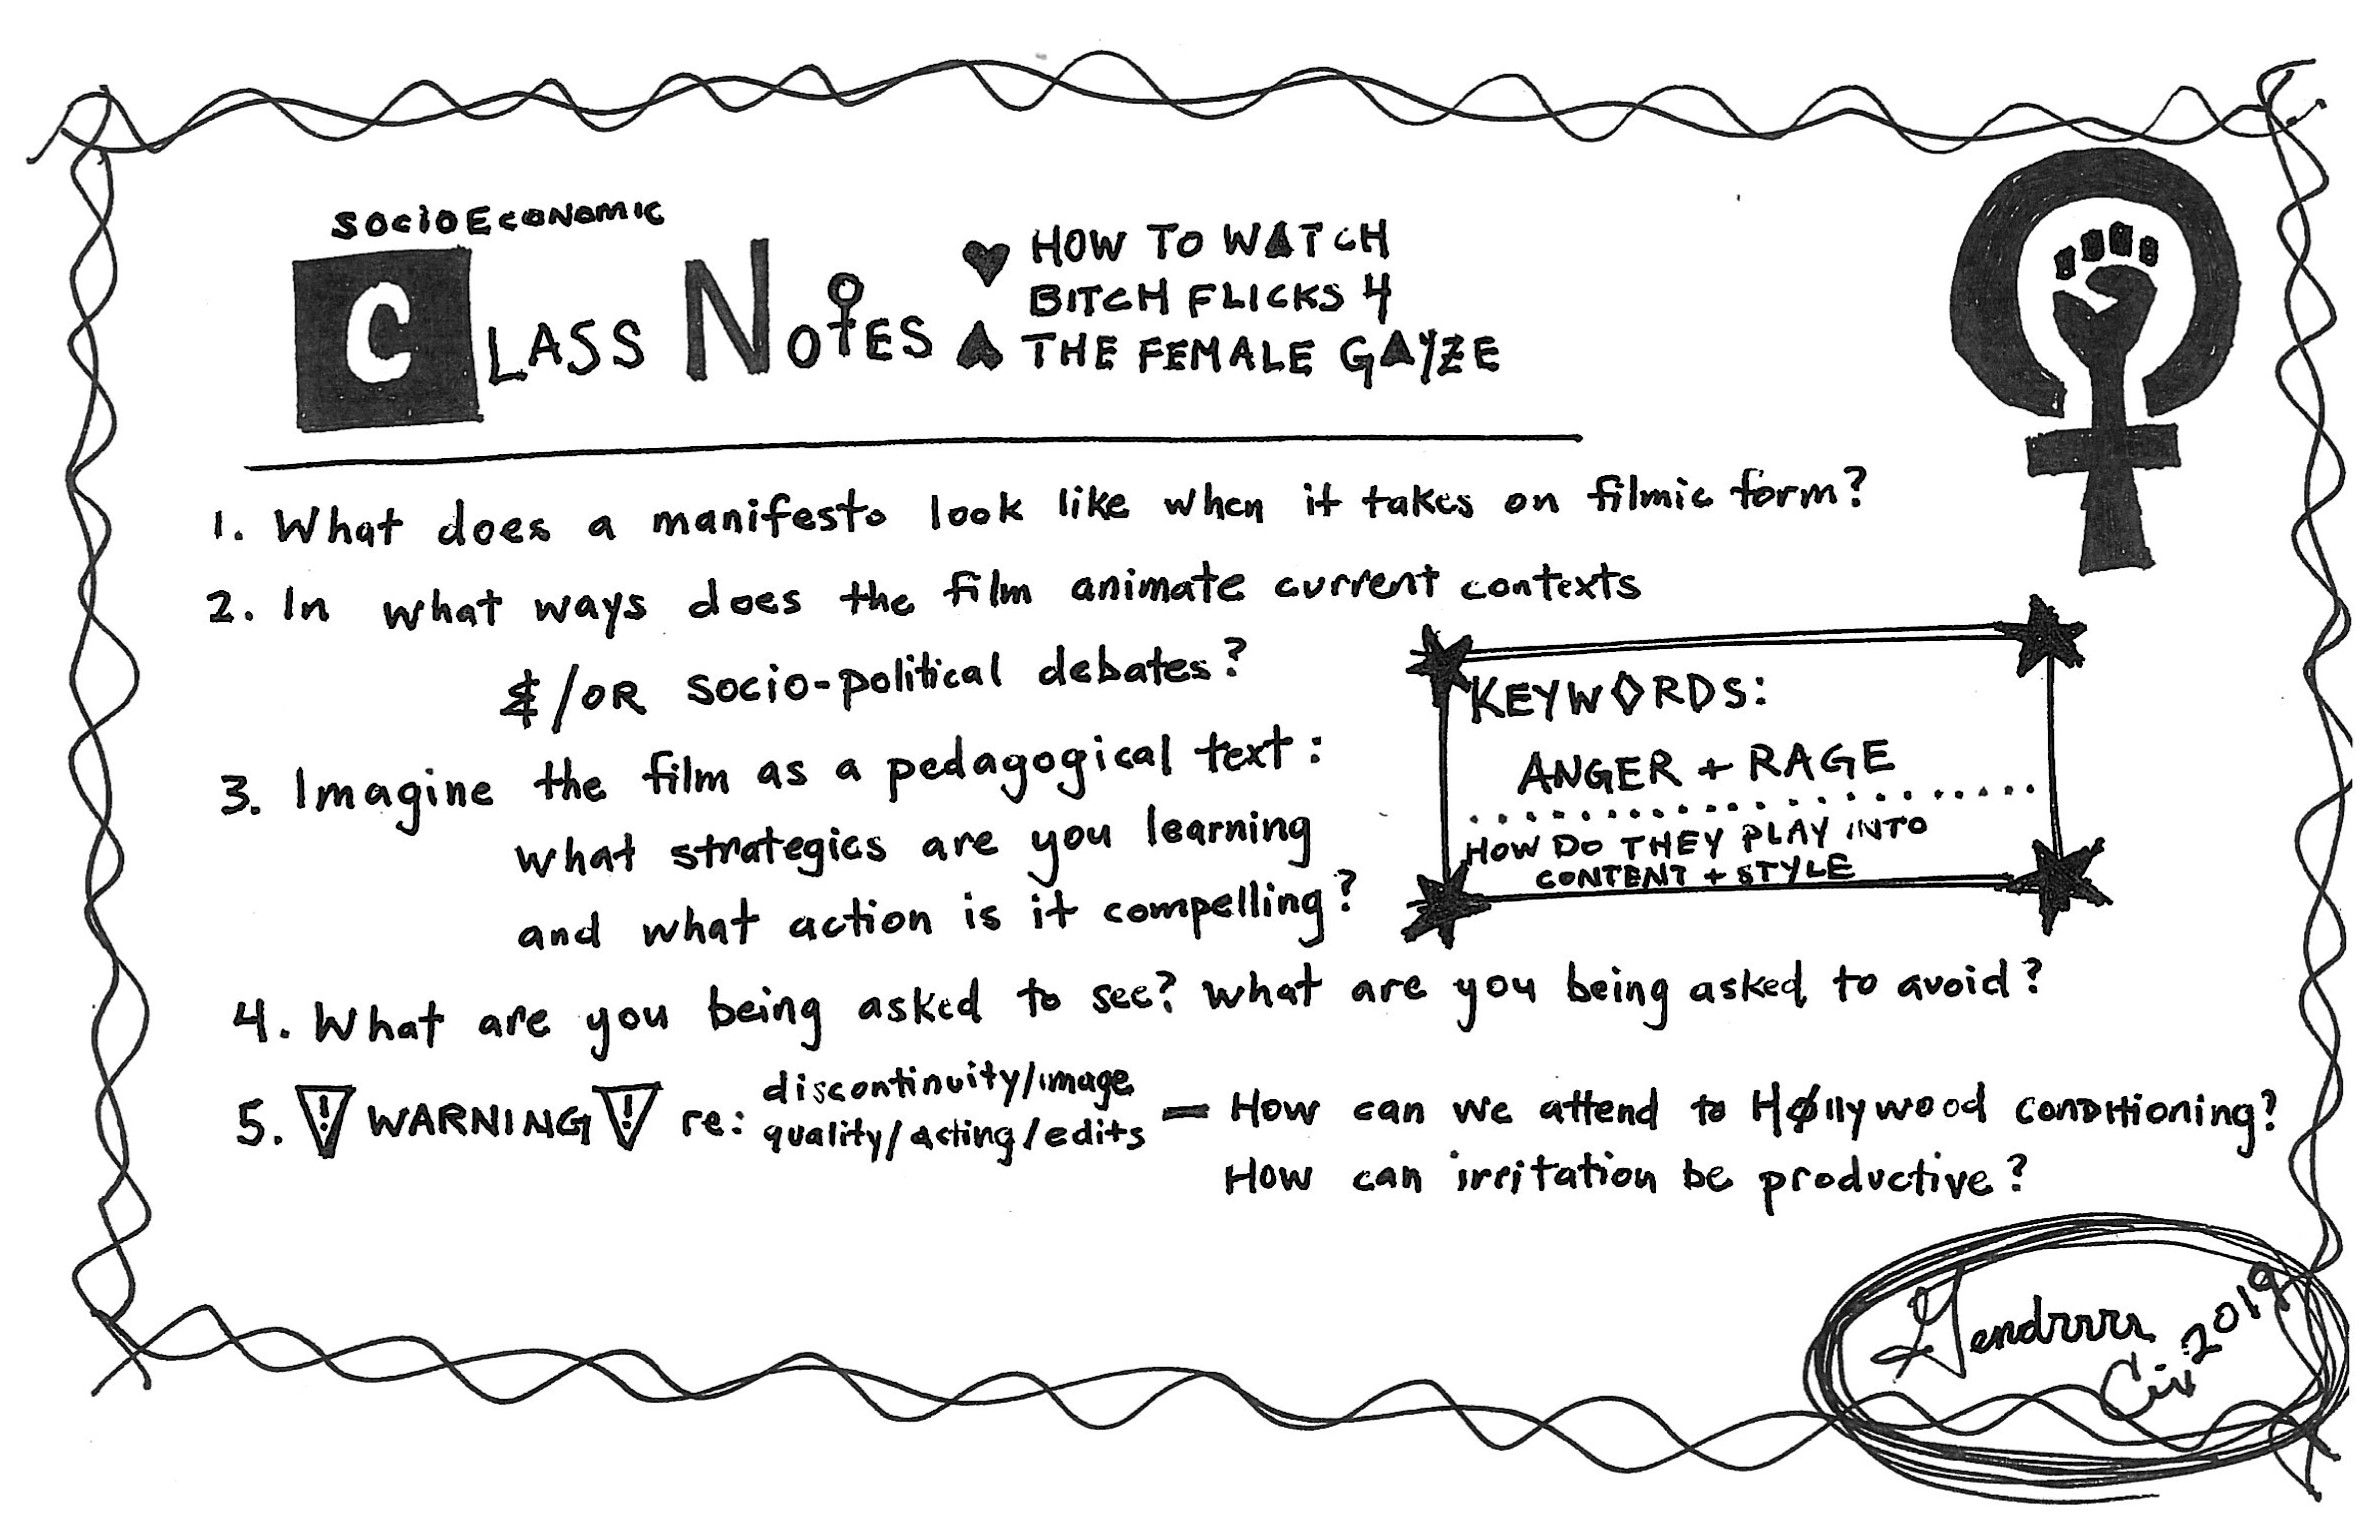 SOCIOECONOMIC
CLASS NOTES
HOW TO WATCH
BITCH FLICKS 4
THE FEMALE GAYZE
1. What does a manifesto look like when it takes on filmic form?
2. In what ways does the film animate current contexts
&/OR socio-political debates?
3. Imagine the film as a pedagogical text:
what strategies are you learning
and what action is it compelling?
KEYWORDS:
ANGER + RAGE
HOW DO THEY PLAY INTO
CONTENT + STYLE
4. What are you being asked to see? What are you being asked to avoid?
5. ! WARNING ! re: discontinuity/image
quality/acting/edits – How can we attend to Høllywood conditioning?
How can irritation be productive?
Gendrrrr
Civ 2019